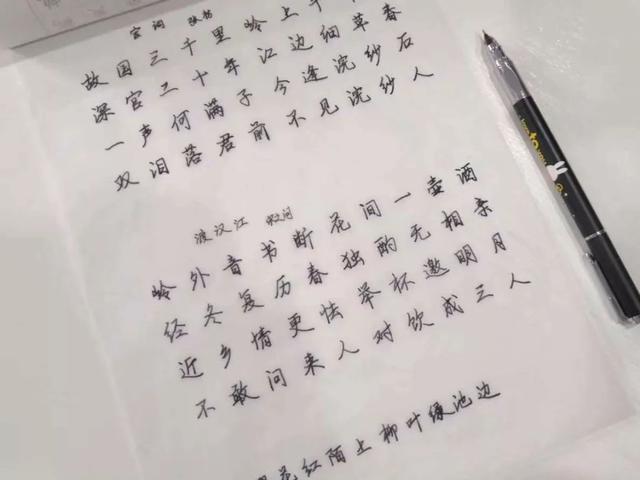 宫词 张祜
故国三千里岭上
深宫二十年江边细草香
一声何满子今逢浣纱石
双泪落君前不见浣纱人
渡汉江 宋之问
岭外音书断花间一壶酒
经冬复历春独酌无相亲
近乡情更怯举杯邀明月
不敢问来人对饮成三人
花红陌上柳叶绿池边